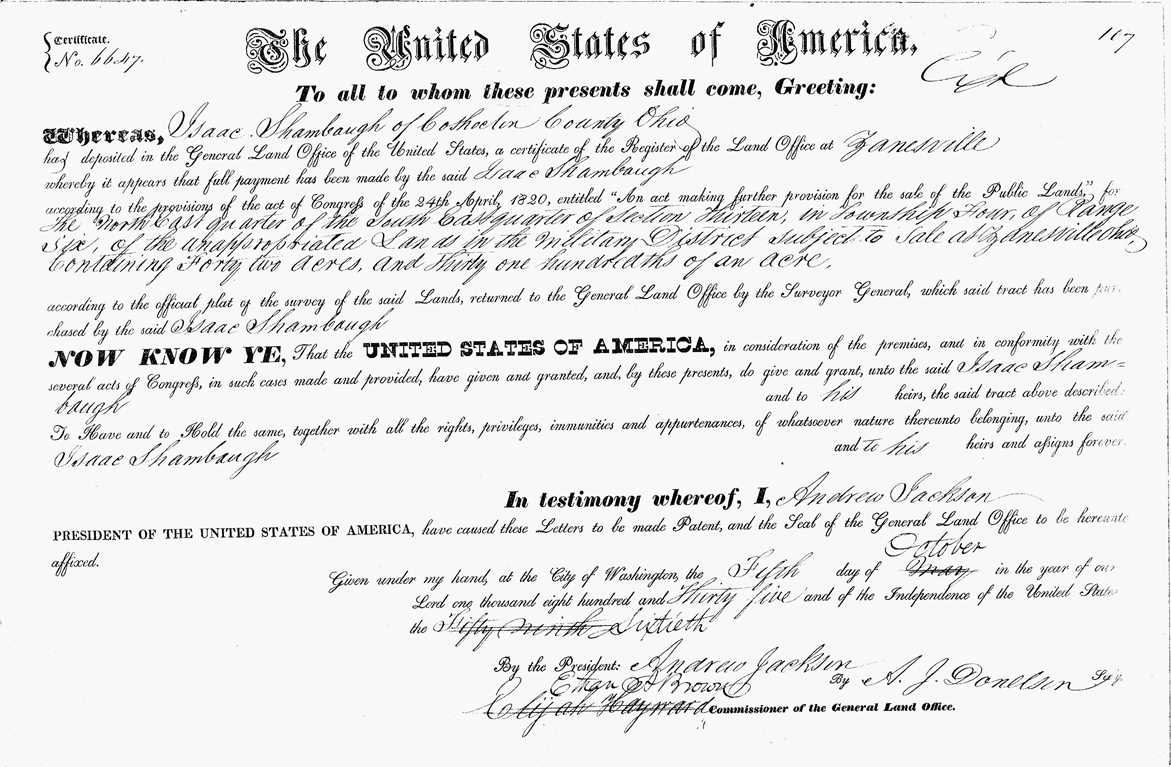 Certificate.
No. 6647.
The United States of America,
117
To all to whom these presents shall come, Greeting:
Whereas, Isaac Shambaugh of Coshocton County Ohio
has deposited in the General Land Office of the United States, a certificate of the Register of the Land Office at Zanesville
whereby it appears that full payment has been made by the said Isaac Shambaugh
according to the provisions of the act of Congress of the 24th April, 1820, entitled “An act making further provision for the sale of the Public Lands,” for
the North East quarter of the South East quarter of Section Thirteen, in Township Four, of Range
Six, of the unappropriated Lands in the Military District subject to Sale at Zanesville Ohio,
Containing Forty two acres, and Thirty one hundredths of an acre,
according to the official plat of the survey of the said Lands, returned to the General Land Office by the Surveyor General, which said tract has been pur-
chased by the said Isaac Shambaugh
NOW KNOW YE, That the UNITED STATES OF AMERICA, in consideration of the premises, and in conformity with the
several acts of Congress, in such cases made and provided, have given and granted, and, by these presents, do give and grant, unto the said Isaac Sham=
baugh and to his heirs, the said tract above described:
To Have and to Hold the same, together with all the rights, privileges, immunities and appurtenances, of whatsoever nature thereunto belonging, unto the said
Isaac Shambaugh and to his heirs and assigns forever.
In testimony whereof, I, Andrew Jackson
PRESIDENT OF THE UNITED STATES OF AMERICA, have caused these Letters to be made Patent, and the Seal of the General Land Office to be hereunto
affixed.
October
Given under my hand, at the City of Washington, the Fifth day of May in the year of our
Lord one thousand eight hundred and Thirty five and of the Independence of the United States
the Fifty ninth Sixtieth
By the President: Andrew Jackson
By A. J. Donelson Sec'y.
Ethan A Brown
Elijah Hayward Commissioner of the General Land Office.